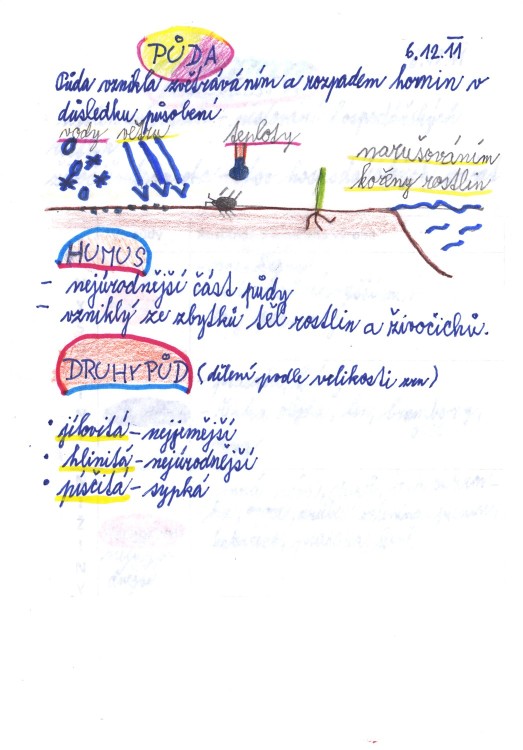 PŮDA
6.12.11
Půda vznikla zvětráváním a rozpadem hornin v
důsledku působení
vody větru teploty
narušováním
kořeny rostlin
HUMUS
- nejúrodnější část půdy
- vzniklý ze zbytků těl rostlin a živočichů.
DRUHY PŮD (dělení podle velikosti zrn)
• jílovitá - nejjemější
• hlinitá - nejúrodnější
• písčitá - sypká